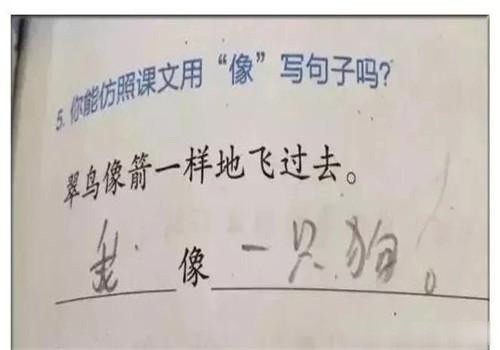 5. 你能仿照课文用“像”写句子吗?
翠鸟像箭一样地飞过去。
像一只狗。